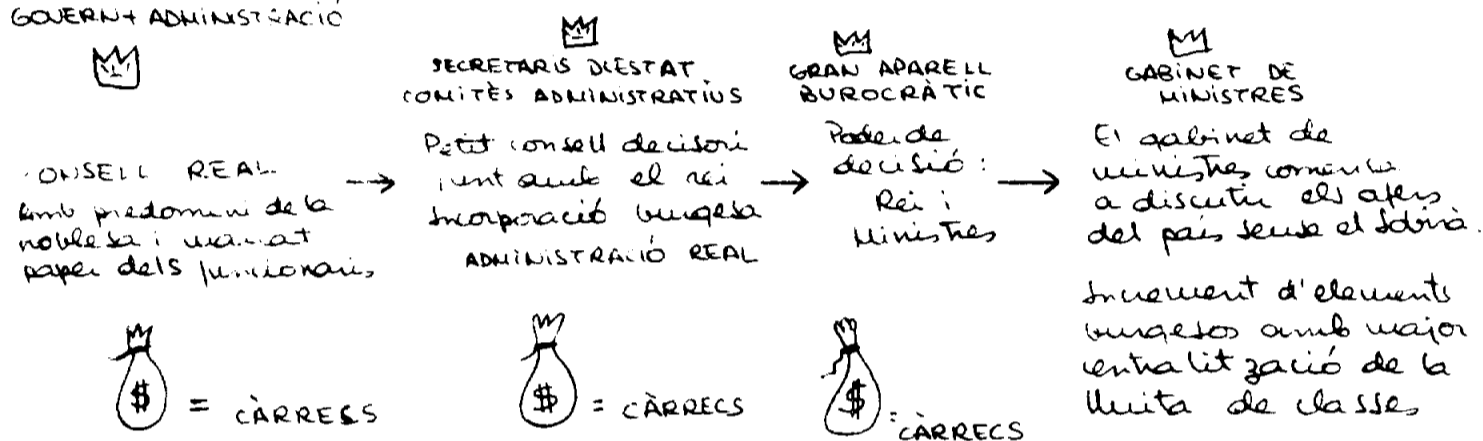 GOVERN + ADMINISTRACIÓ
CONSELL REAL
amb predomini de la
noblesa i marcat
paper dels funcionaris
$ = CÀRRECS
SECRETARIS D'ESTAT
COMITÈS ADMINISTRATIUS
Petit consell decisori
junt amb el rei
Incorporació burgesa
ADMINISTRACIÓ REAL
$ = CÀRRECS
GRAN APARELL
BUROCRÀTIC
Poder de
decisió :
Rei i
Ministres
$ = CÀRRECS
GABINET DE
MINISTRES
El gabinet de
ministres comença
a discutir els afers
del país sense el sobirà.
Increment d'elements
burgesos amb major
centralització de la
lluita de classes